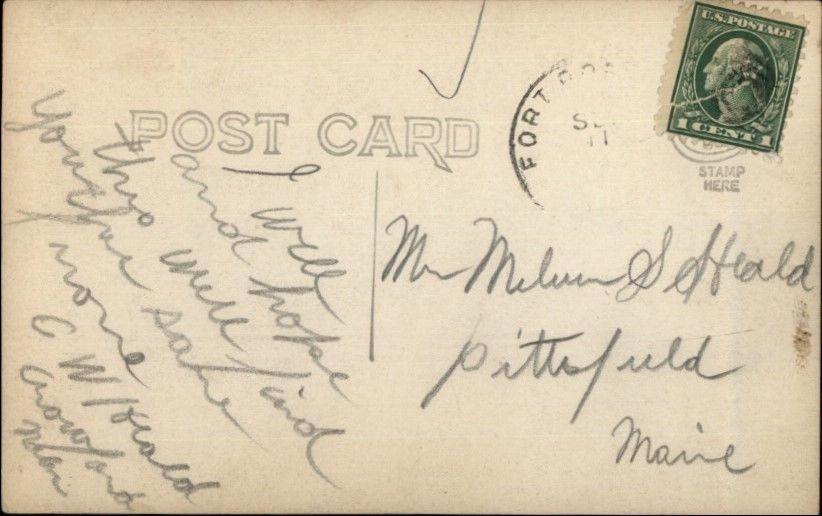 POST CARD
FORT
11
U.S. POSTAGE
1 CENT 1
STAMP
HERE
I well
and hope
this will find
you the same
C W Heald
Crawford
Mr Melvin S Heald
Pittsfield
Maine